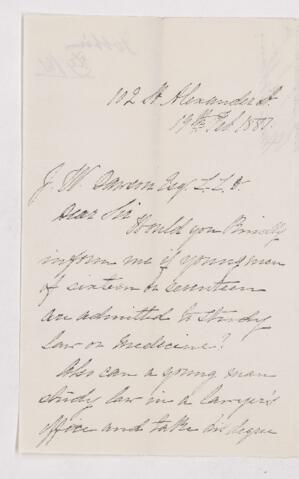 102 St Alexander St.
19th Feb. 1887.
J. W. Dawson Esq. L.L.D.
Dear Sir
Would you Kindly
inform me if young men
of sixteen or seventeen
are admitted to study
law or medicine?
Also can a young man
study law in a lawyer's
office and take his degree